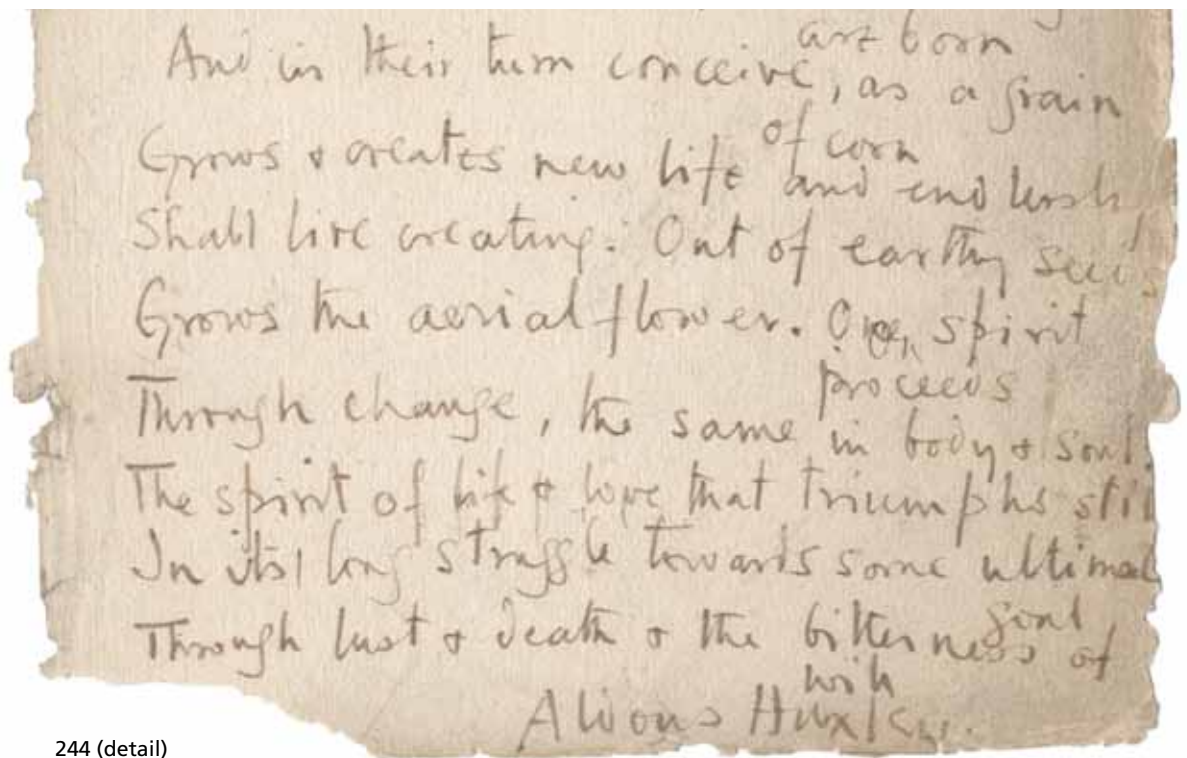 are born
And in their turn conceive, as a grain
of corn
Grows & creates new life and endlessly
Shall live creating. Out of earthy seeds
Grows the aerial flower. One spirit
proceeds
Through change, the same in body & soul.
The spirit of life & love that triumphs still
In its long struggle towards some ultimate
goal
Through lust & death & the bitterness of
will
Aldous Huxley.
244 (detail)